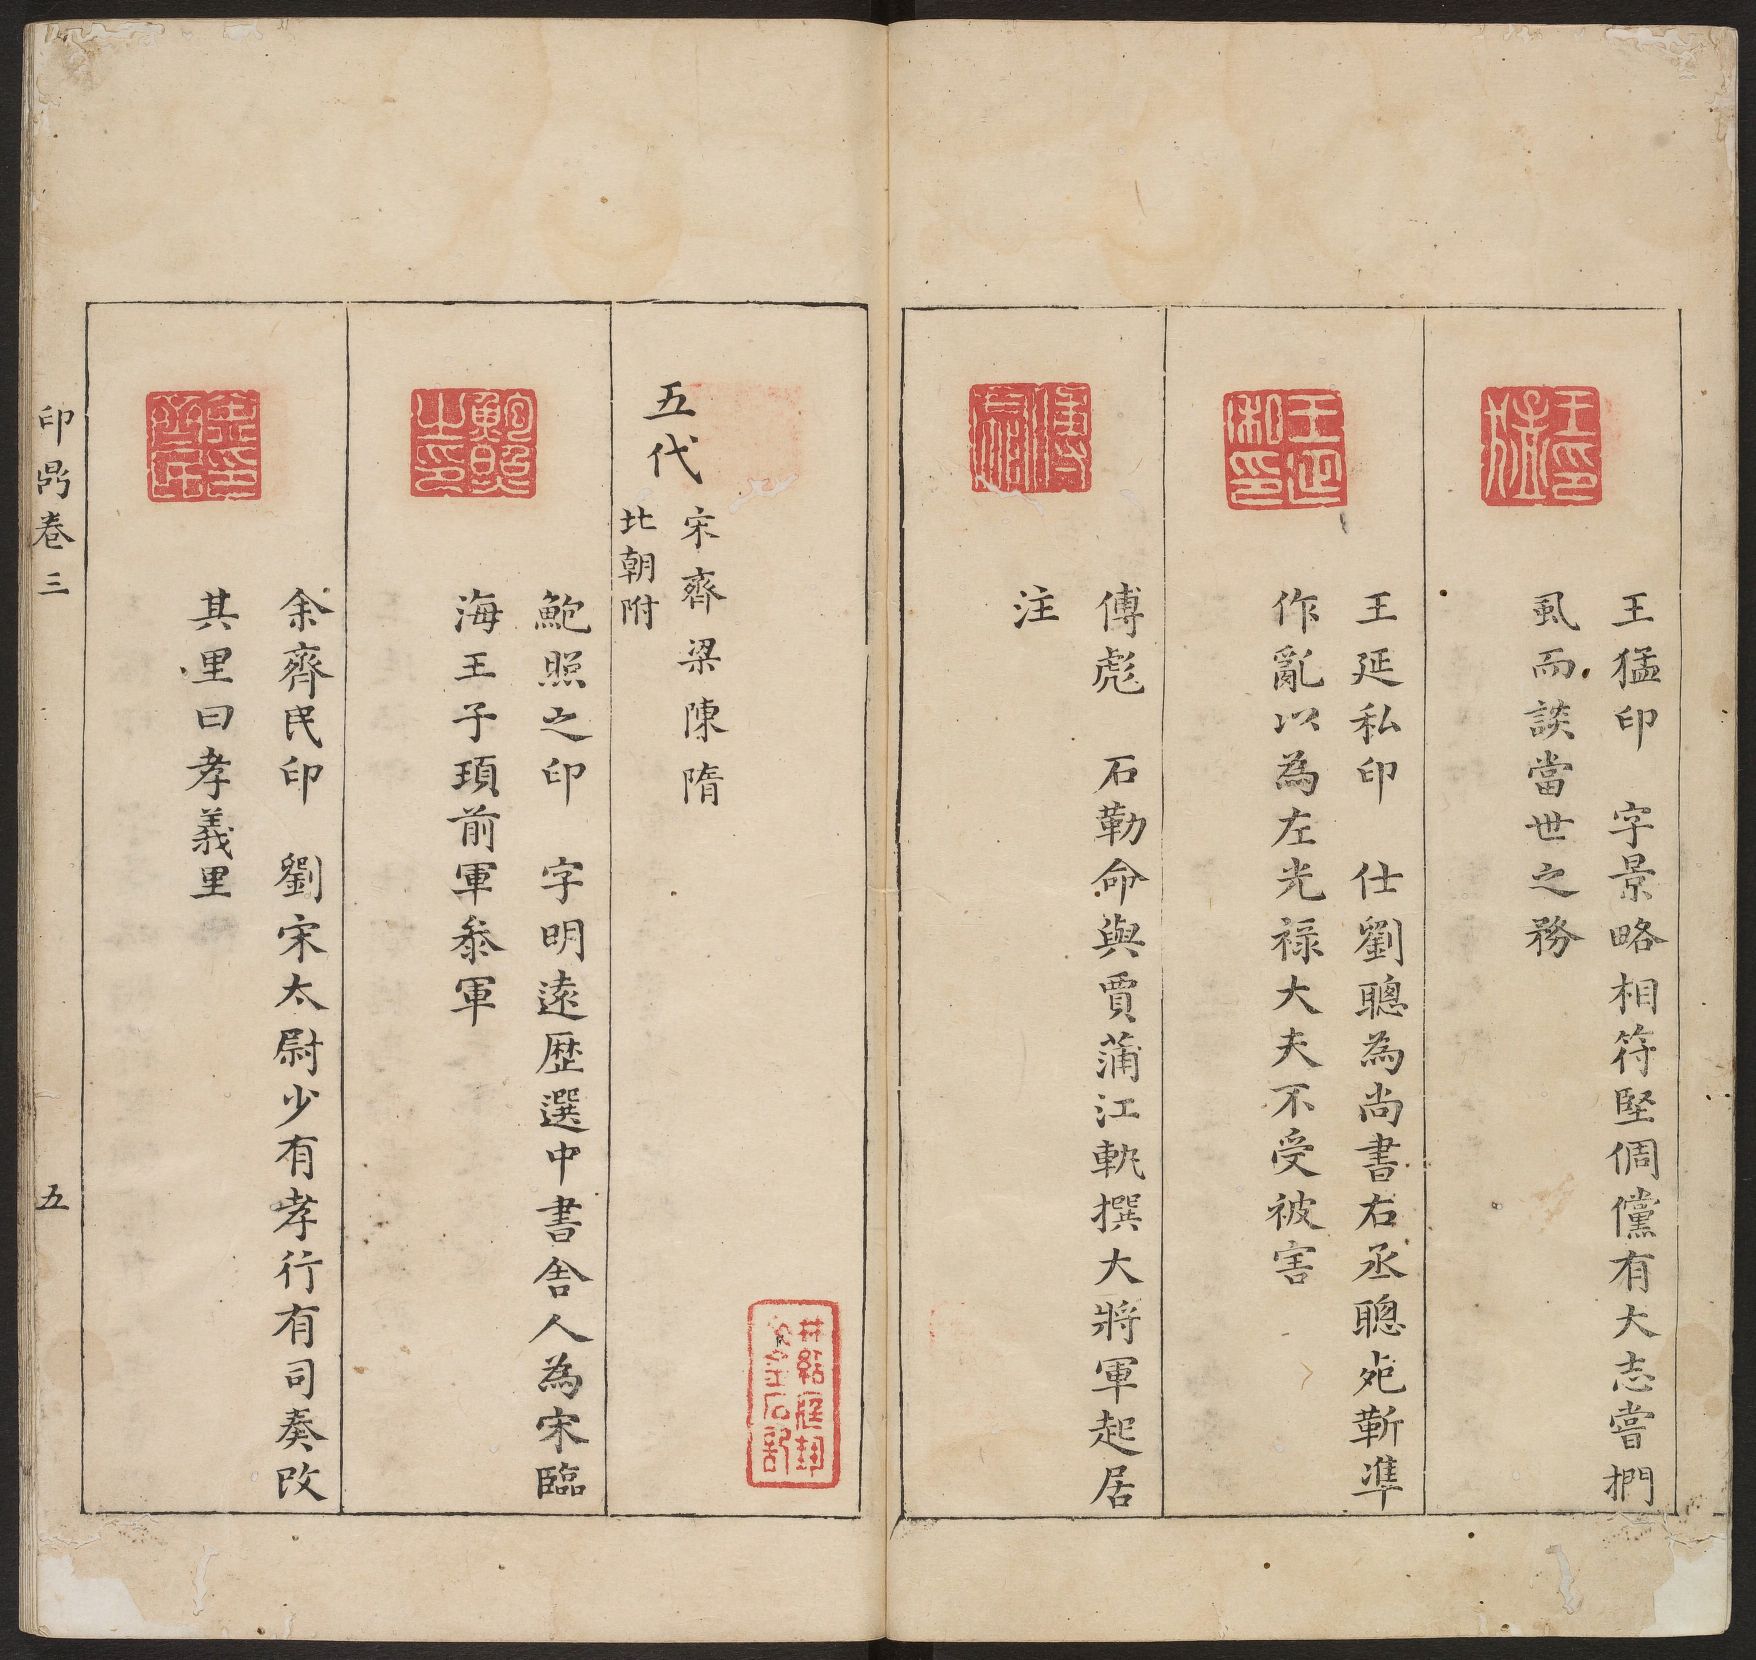 王猛印　字景略相符堅倜儻有大志嘗捫
虱而談當世之務
王延私印　仕劉聰為尚書右丞聰死靳準
作亂以為左光祿大夫不受被害
傅彪　石勒命與賈蒲江軌撰大將軍起居
注
五代
宋齊梁陳隋
北朝附
鮑照之印　字明遠歷選中書舍人為宋臨
海王子頊前軍叅軍
余齊民印　劉宋太尉少有孝行有司奏改
其里曰孝義里
印鼎卷三
五
王猛印
王延私印
傅彪
鮑照之印
余齊民印